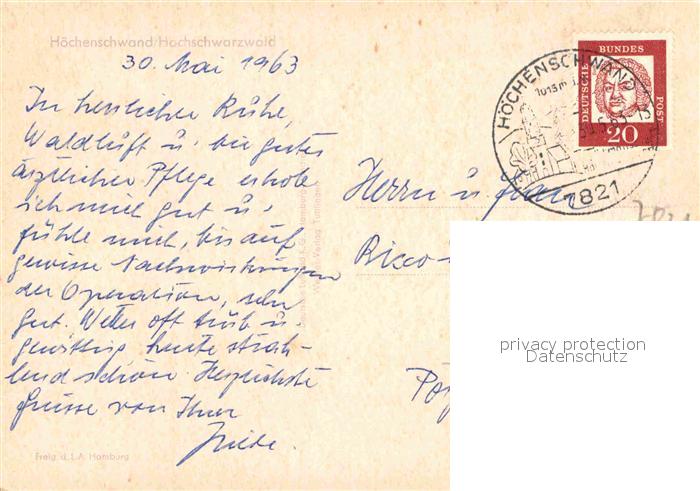 Höchenschwand/Hochschwarzwald
30. Mai 1963
In herrlicher Ruhe,
Waldluft u. bei guter
ärztlicher Pflege erhole
ich mich gut u.
fühle mich, bis auf
gewisse Nachwirkungen
der Operation, sehr
gut. Wetter oft trüb u.
gewittrig, heute strah-
lend schön. Herzlichste
Grüsse von Ihrer
Friede.
Freig. d. L.A. Hamburg
HÖCHENSCHWAND
1015 m
1821
DEUTSCHE
BUNDES
POST
20
Herrn u. Frau
privacy protection
Datenschutz